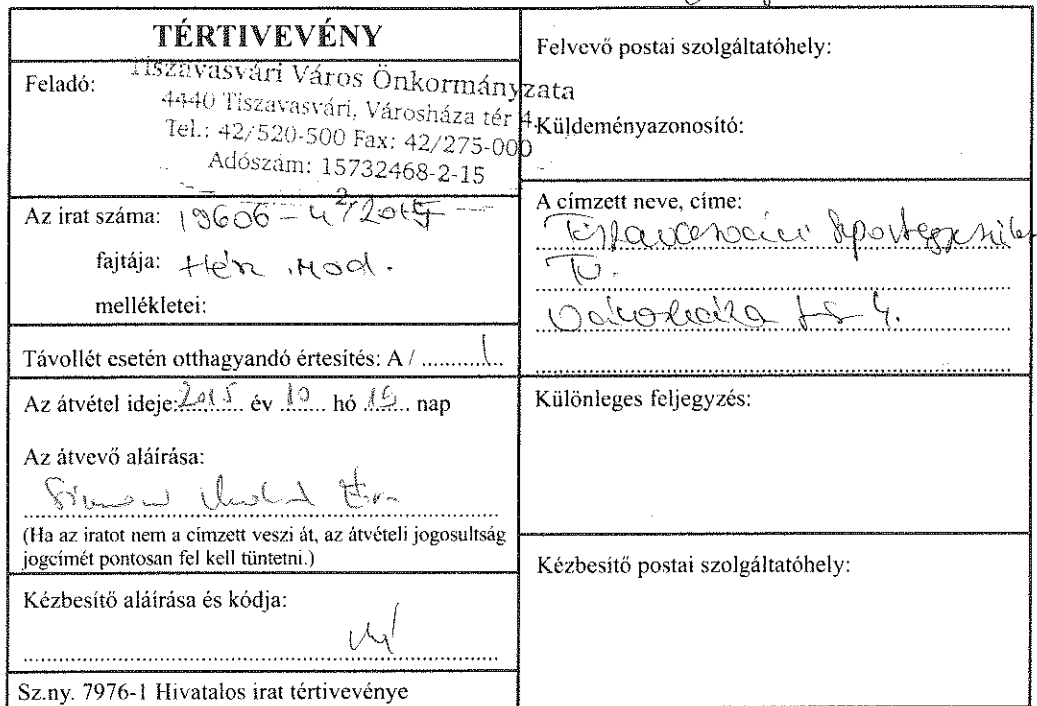 TÉRTIVEVÉNY
Feladó:
Tiszavasvári Város Önkormányzata
4440 Tiszavasvári, Városháza tér 4.
Tel.: 42/520-500 Fax: 42/275-000
Adószám: 15732468-2-15
Az irat száma: 19606-4/2015
fajtája:
mellékletei:
Távollét esetén otthagyandó értesítés: A / ............
Az átvétel ideje: 2015 év 10 hó 16 nap
Az átvevő aláírása:
(Ha az iratot nem a címzett veszi át, az átvételi jogosultság
jogcímét pontosan fel kell tüntetni.)
Kézbesítő aláírása és kódja:
Sz.ny. 7976-1 Hivatalos irat tértivevénye
Felvevő postai szolgáltatóhely:
Küldeményazonosító:
A címzett neve, címe:
Tiszavasvári Sportegyesület
Tv.
Városháza tér 4.
Különleges feljegyzés:
Kézbesítő postai szolgáltatóhely: